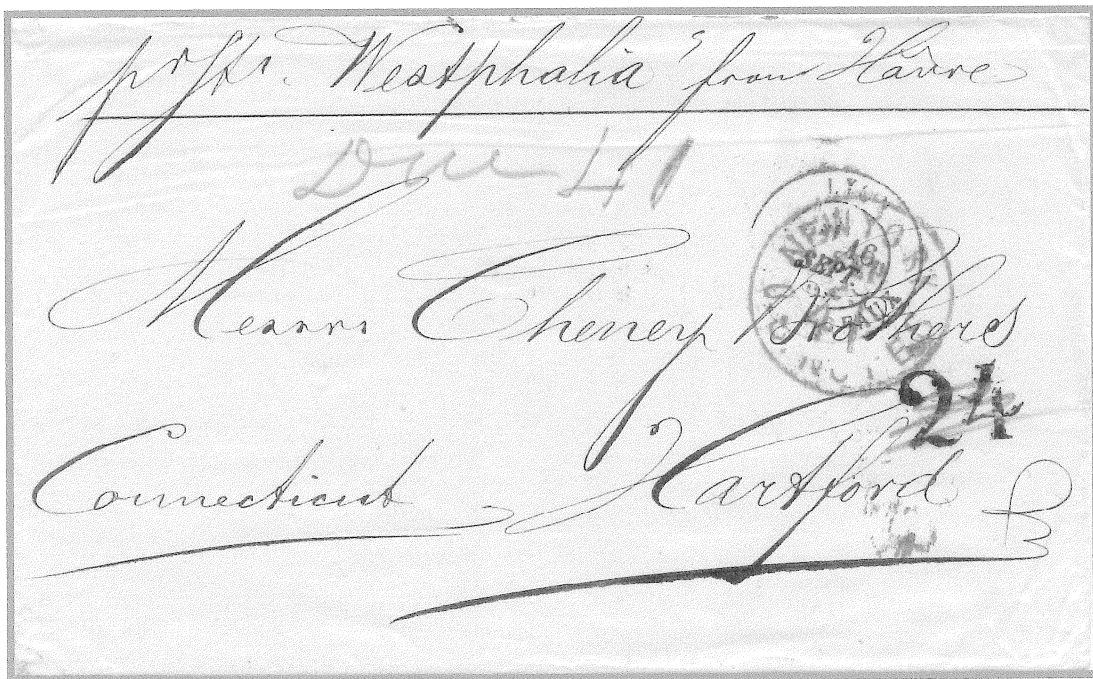 pr Str. "Westphalia" from Hâvre
Due 41
NEW YORK
16
SEPT
Messrs Cheney Brothers
24
Connecticut Hartford